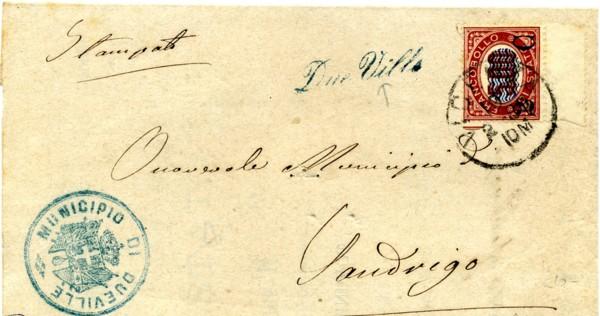 Stampati
Due Ville
FRANCOBOLLO DI STATO
Onorevole Municipio
Sandrigo
MUNICIPIO DI DUEVILLE